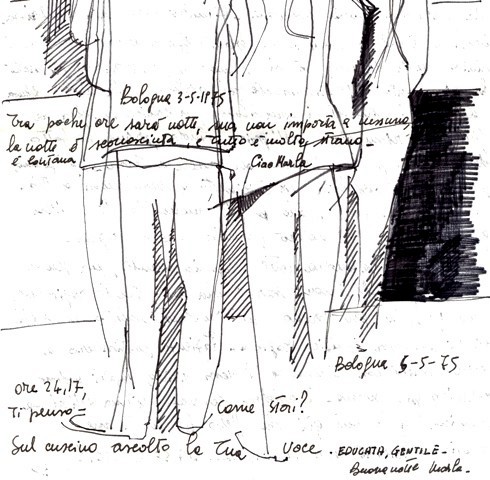 Bologna 3-5-1975
Tra poche ore sarà notte, ma non importa a nessuno,
la notte è sconosciuta, e tutto è molto strano-
è lontana
Ciao Marla
Bologna 5-5-75
ore 24,17,
Ti penso- Come stari?
Sul cuscino ascolto la Tua voce. EDUCATA, GENTILE-
Buona notte Marla-